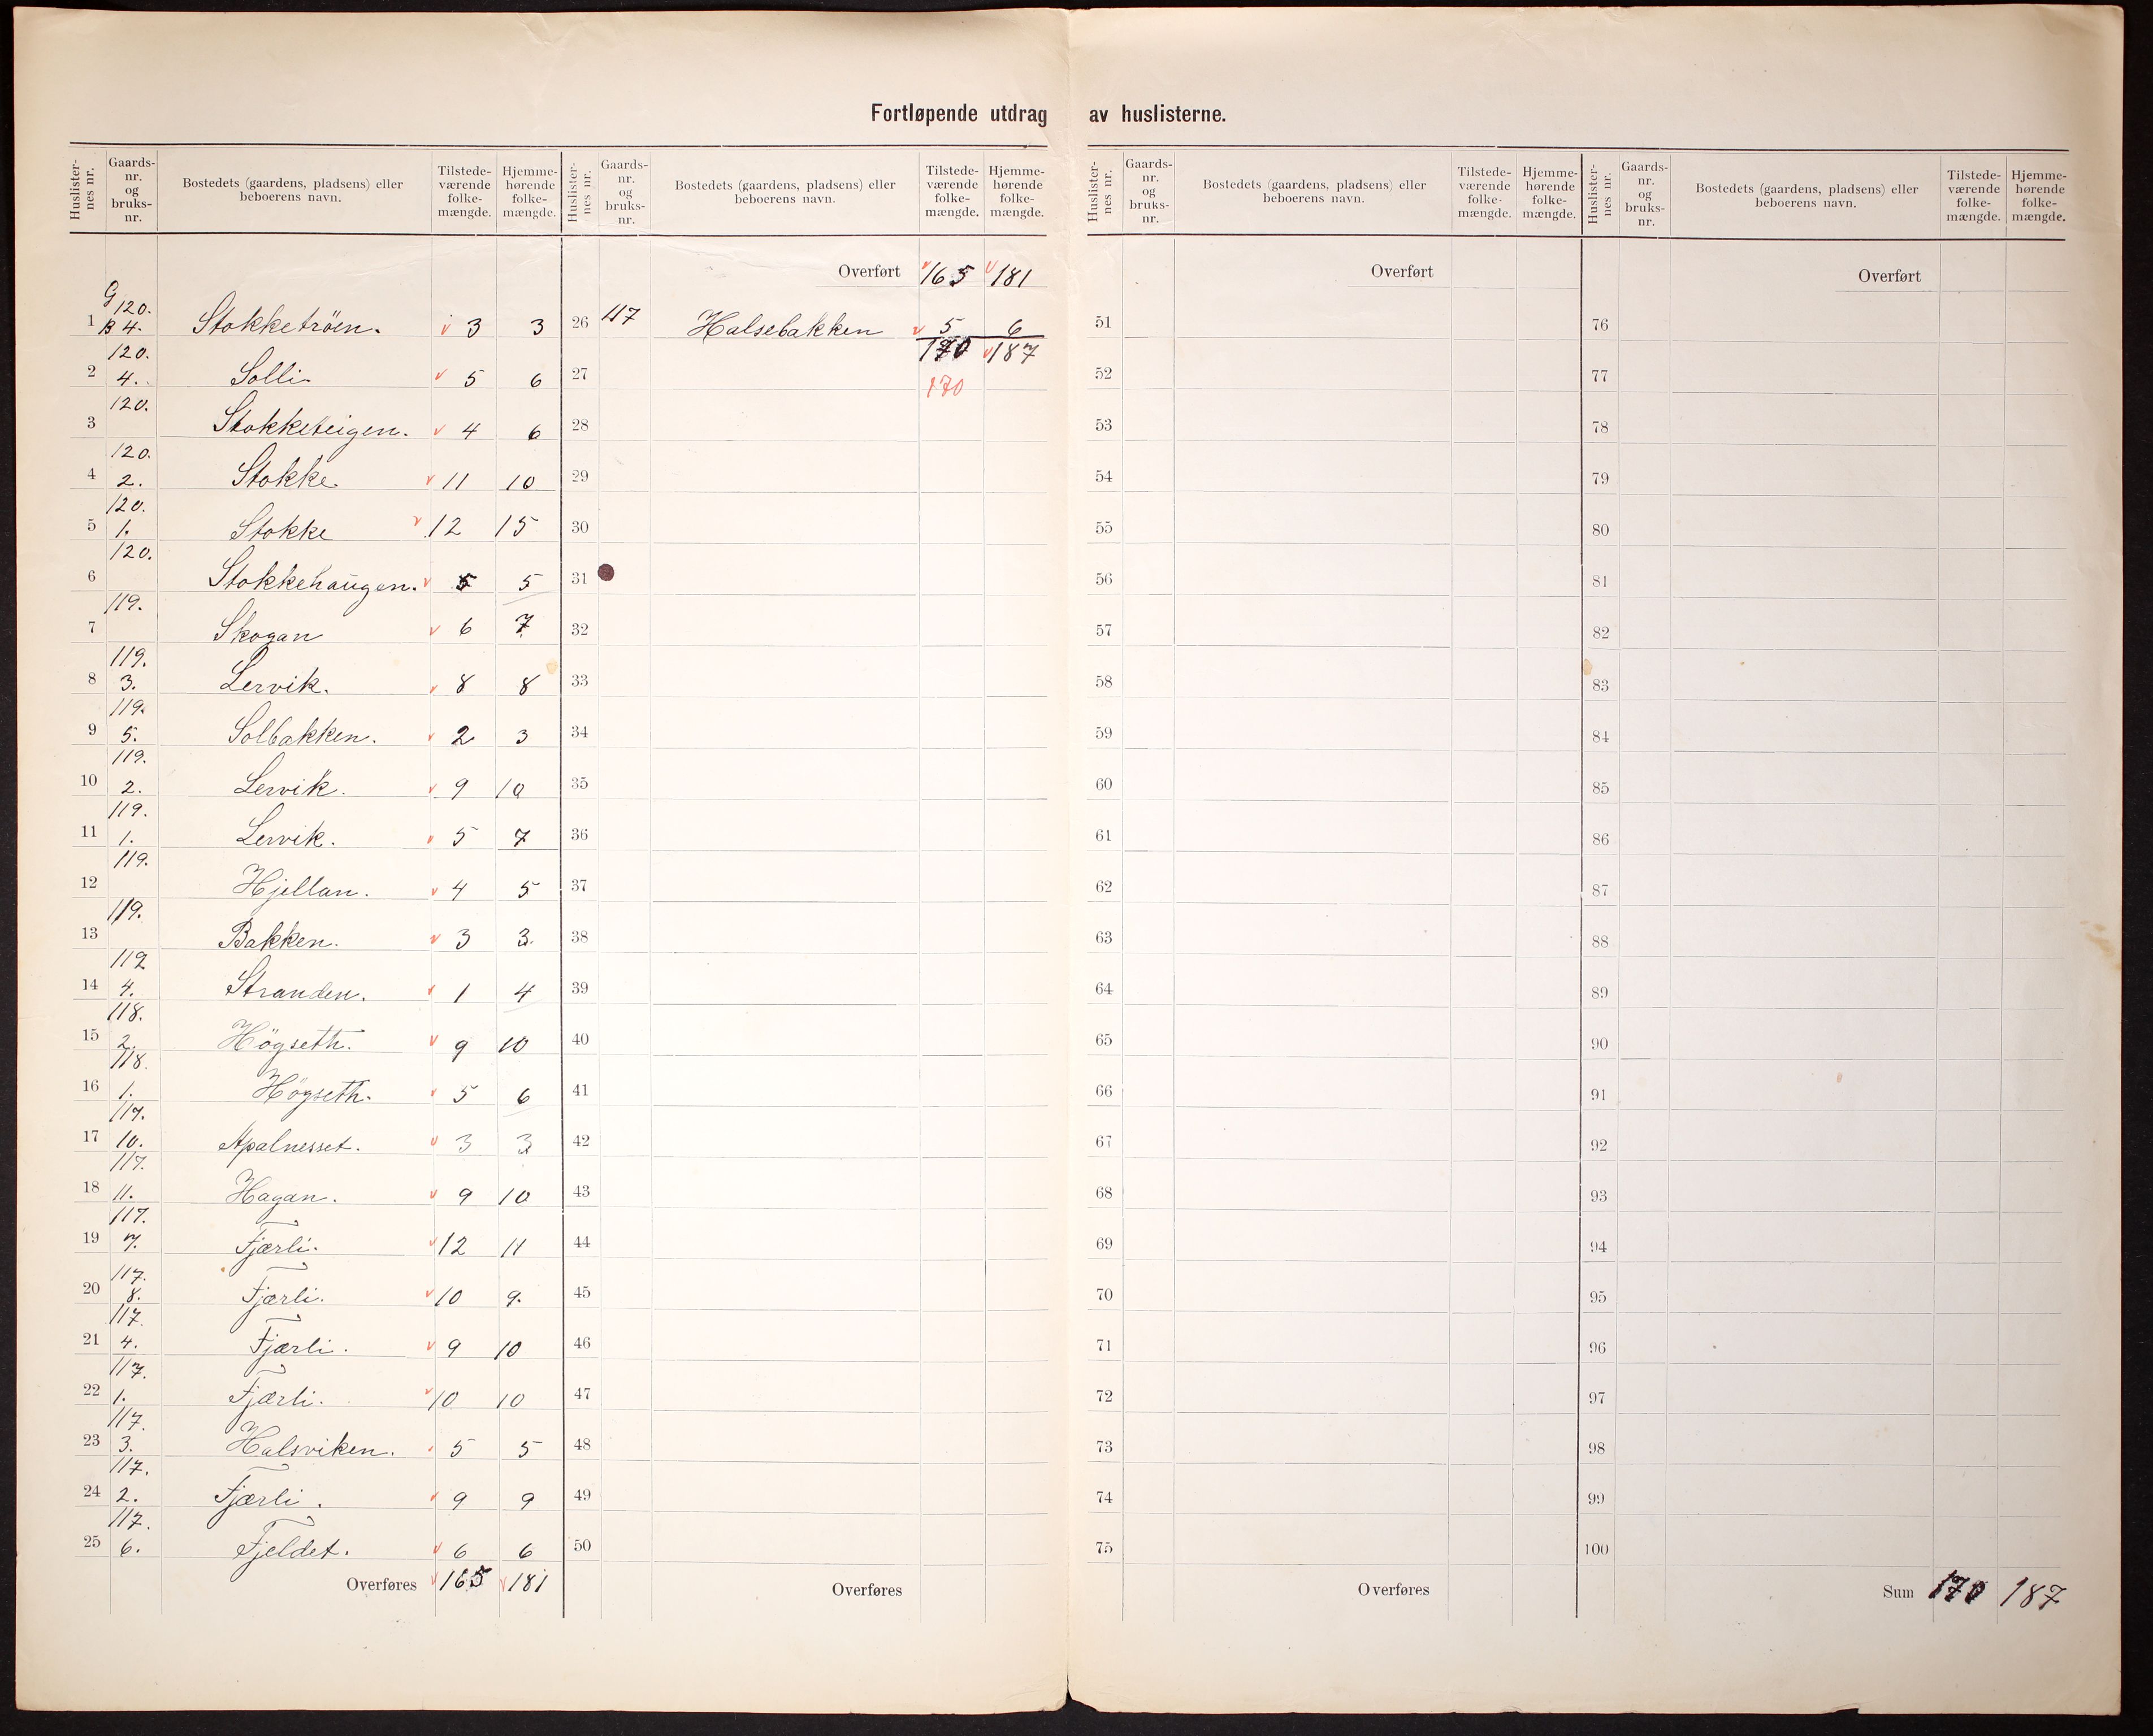 Fortløpende utdrag av huslisterne.
Huslister-nes nr. Gaards-nr. og bruks-nr. Bostedets (gaardens, pladsens) eller beboerens navn. Tilstede-værende folke-mængde. Hjemme-hørende folke-mængde.
Huslister-nes nr. Gaards-nr. og bruks-nr. Bostedets (gaardens, pladsens) eller beboerens navn. Tilstede-værende folke-mængde. Hjemme-hørende folke-mængde.
Huslister-nes nr. Gaards-nr. og bruks-nr. Bostedets (gaardens, pladsens) eller beboerens navn. Tilstede-værende folke-mængde. Hjemme-hørende folke-mængde.
Huslister-nes nr. Gaards-nr. og bruks-nr. Bostedets (gaardens, pladsens) eller beboerens navn. Tilstede-værende folke-mængde. Hjemme-hørende folke-mængde.
1 G 120. B 4. Stokketröen. v 3 3
2 120. 4. Solli v 5 6
3 120. Stokketeigen. v 4 6
4 120. 2. Stokke. v 11 10
5 120. 1. Stokke v 12 15
6 120. Stokkehaugen. v 5 5
7 119. Skogan v 6 7
8 119. 3. Lervik. v 8 8
9 119. 5. Solbakken. v 2 3
10 119. 2. Lervik. v 9 10
11 119. 1. Lervik. v 5 7
12 119. Hjellan. v 4 5
13 119. Bakken. v 3 3.
14 119 4. Stranden. v 1 4
15 118. 2. Högseth. v 9 10
16 118. 1. Högseth. v 5 6
17 117. 10. Apalnesset. v 3 3
18 117. 11. Hagan. v 9 10
19 117. 7. Fjærli. v 12 11
20 117. 8. Fjærli. v 10 9.
21 117. 4. Fjærli. v 9 10
22 117. 1. Fjærli. v 10 10
23 117. 3. Halsviken. v 5 5
24 117. 2. Fjærli. v 9 9
25 117. 6. Fjeldet. v 6 6
Overføres v 165 v 181
Overført v 165 v 181
26 117 Halsebakken v 5 6
170 v 187
27 170
28
29
30
31
32
33
34
35
36
37
38
39
40
41
42
43
44
45
46
47
48
49
50
Overføres
Overført
51
52
53
54
55
56
57
58
59
60
61
62
63
64
65
66
67
68
69
70
71
72
73
74
75
Overføres
Overført
76
77
78
79
80
81
82
83
84
85
86
87
88
89
90
91
92
93
94
95
96
97
98
99
100
Sum 170 187